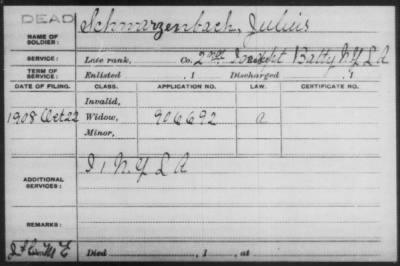 DEAD
NAME OF SOLDIER: Schwarzenbach, Julius
SERVICE: Late rank, Co. 2nd Indpt Batty N.Y. L A
TERM OF SERVICE: Enlisted , 1 Discharged , 1
DATE OF FILING. CLASS. APPLICATION NO. LAW. CERTIFICATE NO.
Invalid,
1908 Oct 22 Widow, 906692 a
Minor,
ADDITIONAL SERVICES: I, 1 N.Y. L A
REMARKS:
Died , 1 , at